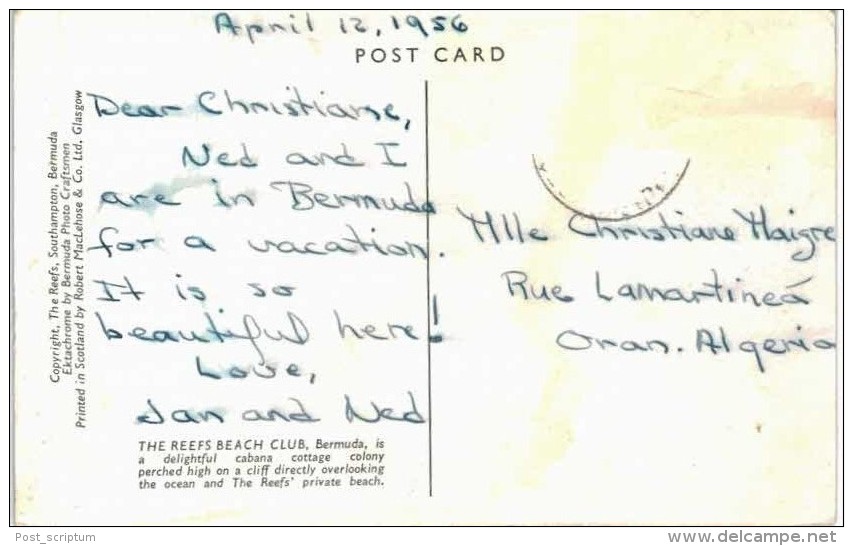 April 12, 1956
POST CARD
Dear Christiane,
Ned and I
are in Bermuda
for a vacation.
It is so
beautiful here!
Love,
Jan and Ned
Mlle Christiane Maigre
Rue Lamartine à
Oran. Algeria
Copyright, The Reefs, Southampton, Bermuda
Ektachrome by Bermuda Photo Craftsmen
Printed in Scotland by Robert MacLehose & Co. Ltd. Glasgow
THE REEFS BEACH CLUB, Bermuda, is
a delightful cabana cottage colony
perched high on a cliff directly overlooking
the ocean and The Reefs' private beach.
Post_scriptum
delcampe.net